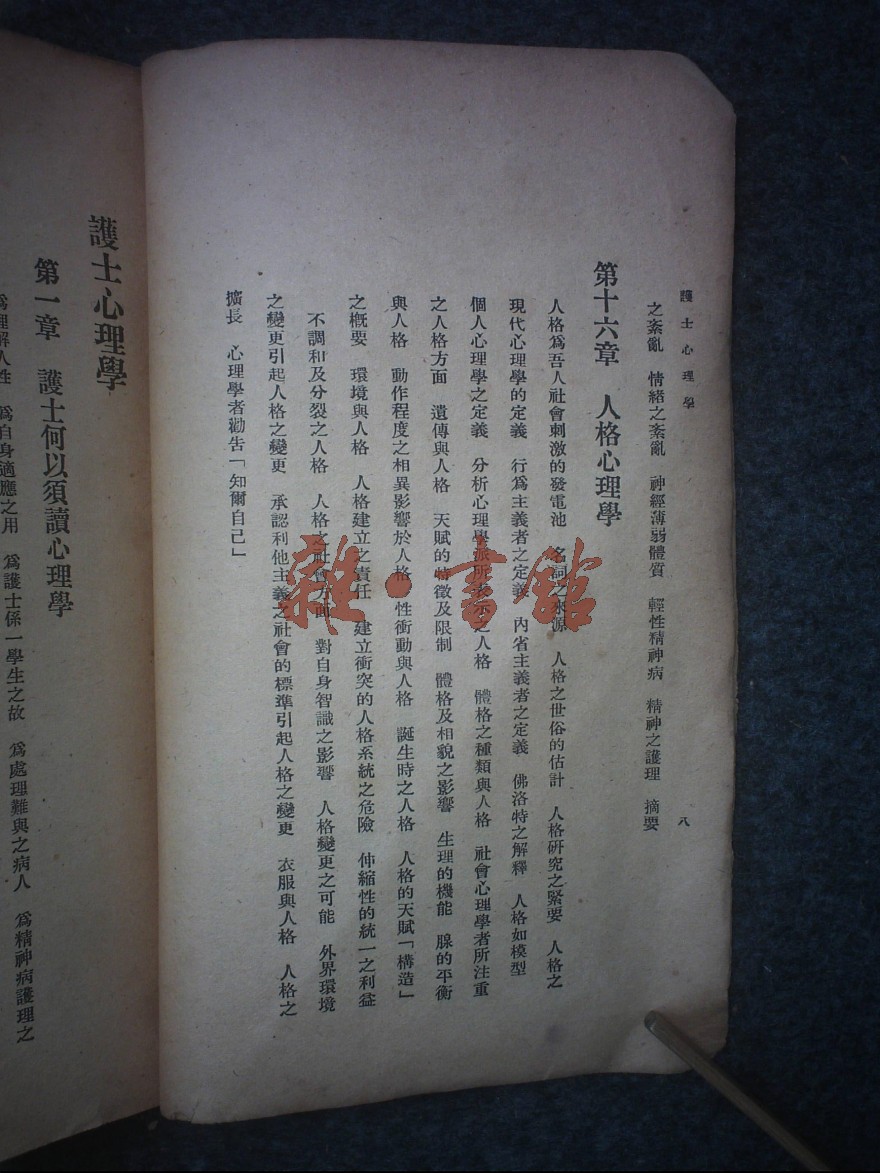 護士心理學
八
之紊亂　情緒之紊亂　神經薄弱體質　輕性精神病　精神之護理　摘要
第十六章　人格心理學
人格爲吾人社會刺激的發電池　名詞之來源　人格之世俗的估計　人格硏究之緊要　人格之
現代心理學的定義　行爲主義者之定義　內省主義者之定義　佛洛特之解釋　人格如模型
個人心理學之定義　分析心理學派所表示之人格　體格之種類與人格　社會心理學者所注重
之人格方面　遺傳與人格　天賦的特徵及限制　體格及相貌之影響　生理的機能　腺的平衡
與人格　動作程度之相異影響於人格　性衝動與人格　誕生時之人格　人格的天賦「構造」
之槪要　環境與人格　人格建立之責任　建立衝突的人格系統之危險　伸縮性的統一之利益
不調和及分裂之人格　人格之社會方面　對自身智識之影響　人格變更之可能　外界環境
之變更引起人格之變更　承認利他主義之社會的標準引起人格之變更　衣服與人格　人格之
擴長　心理學者勸告「知爾自己」
護士心理學
第一章　護士何以須讀心理學
爲理解人性　爲自身適應之用　爲護士係一學生之故　爲處理難與之病人　爲精神病護理之
雜·書館